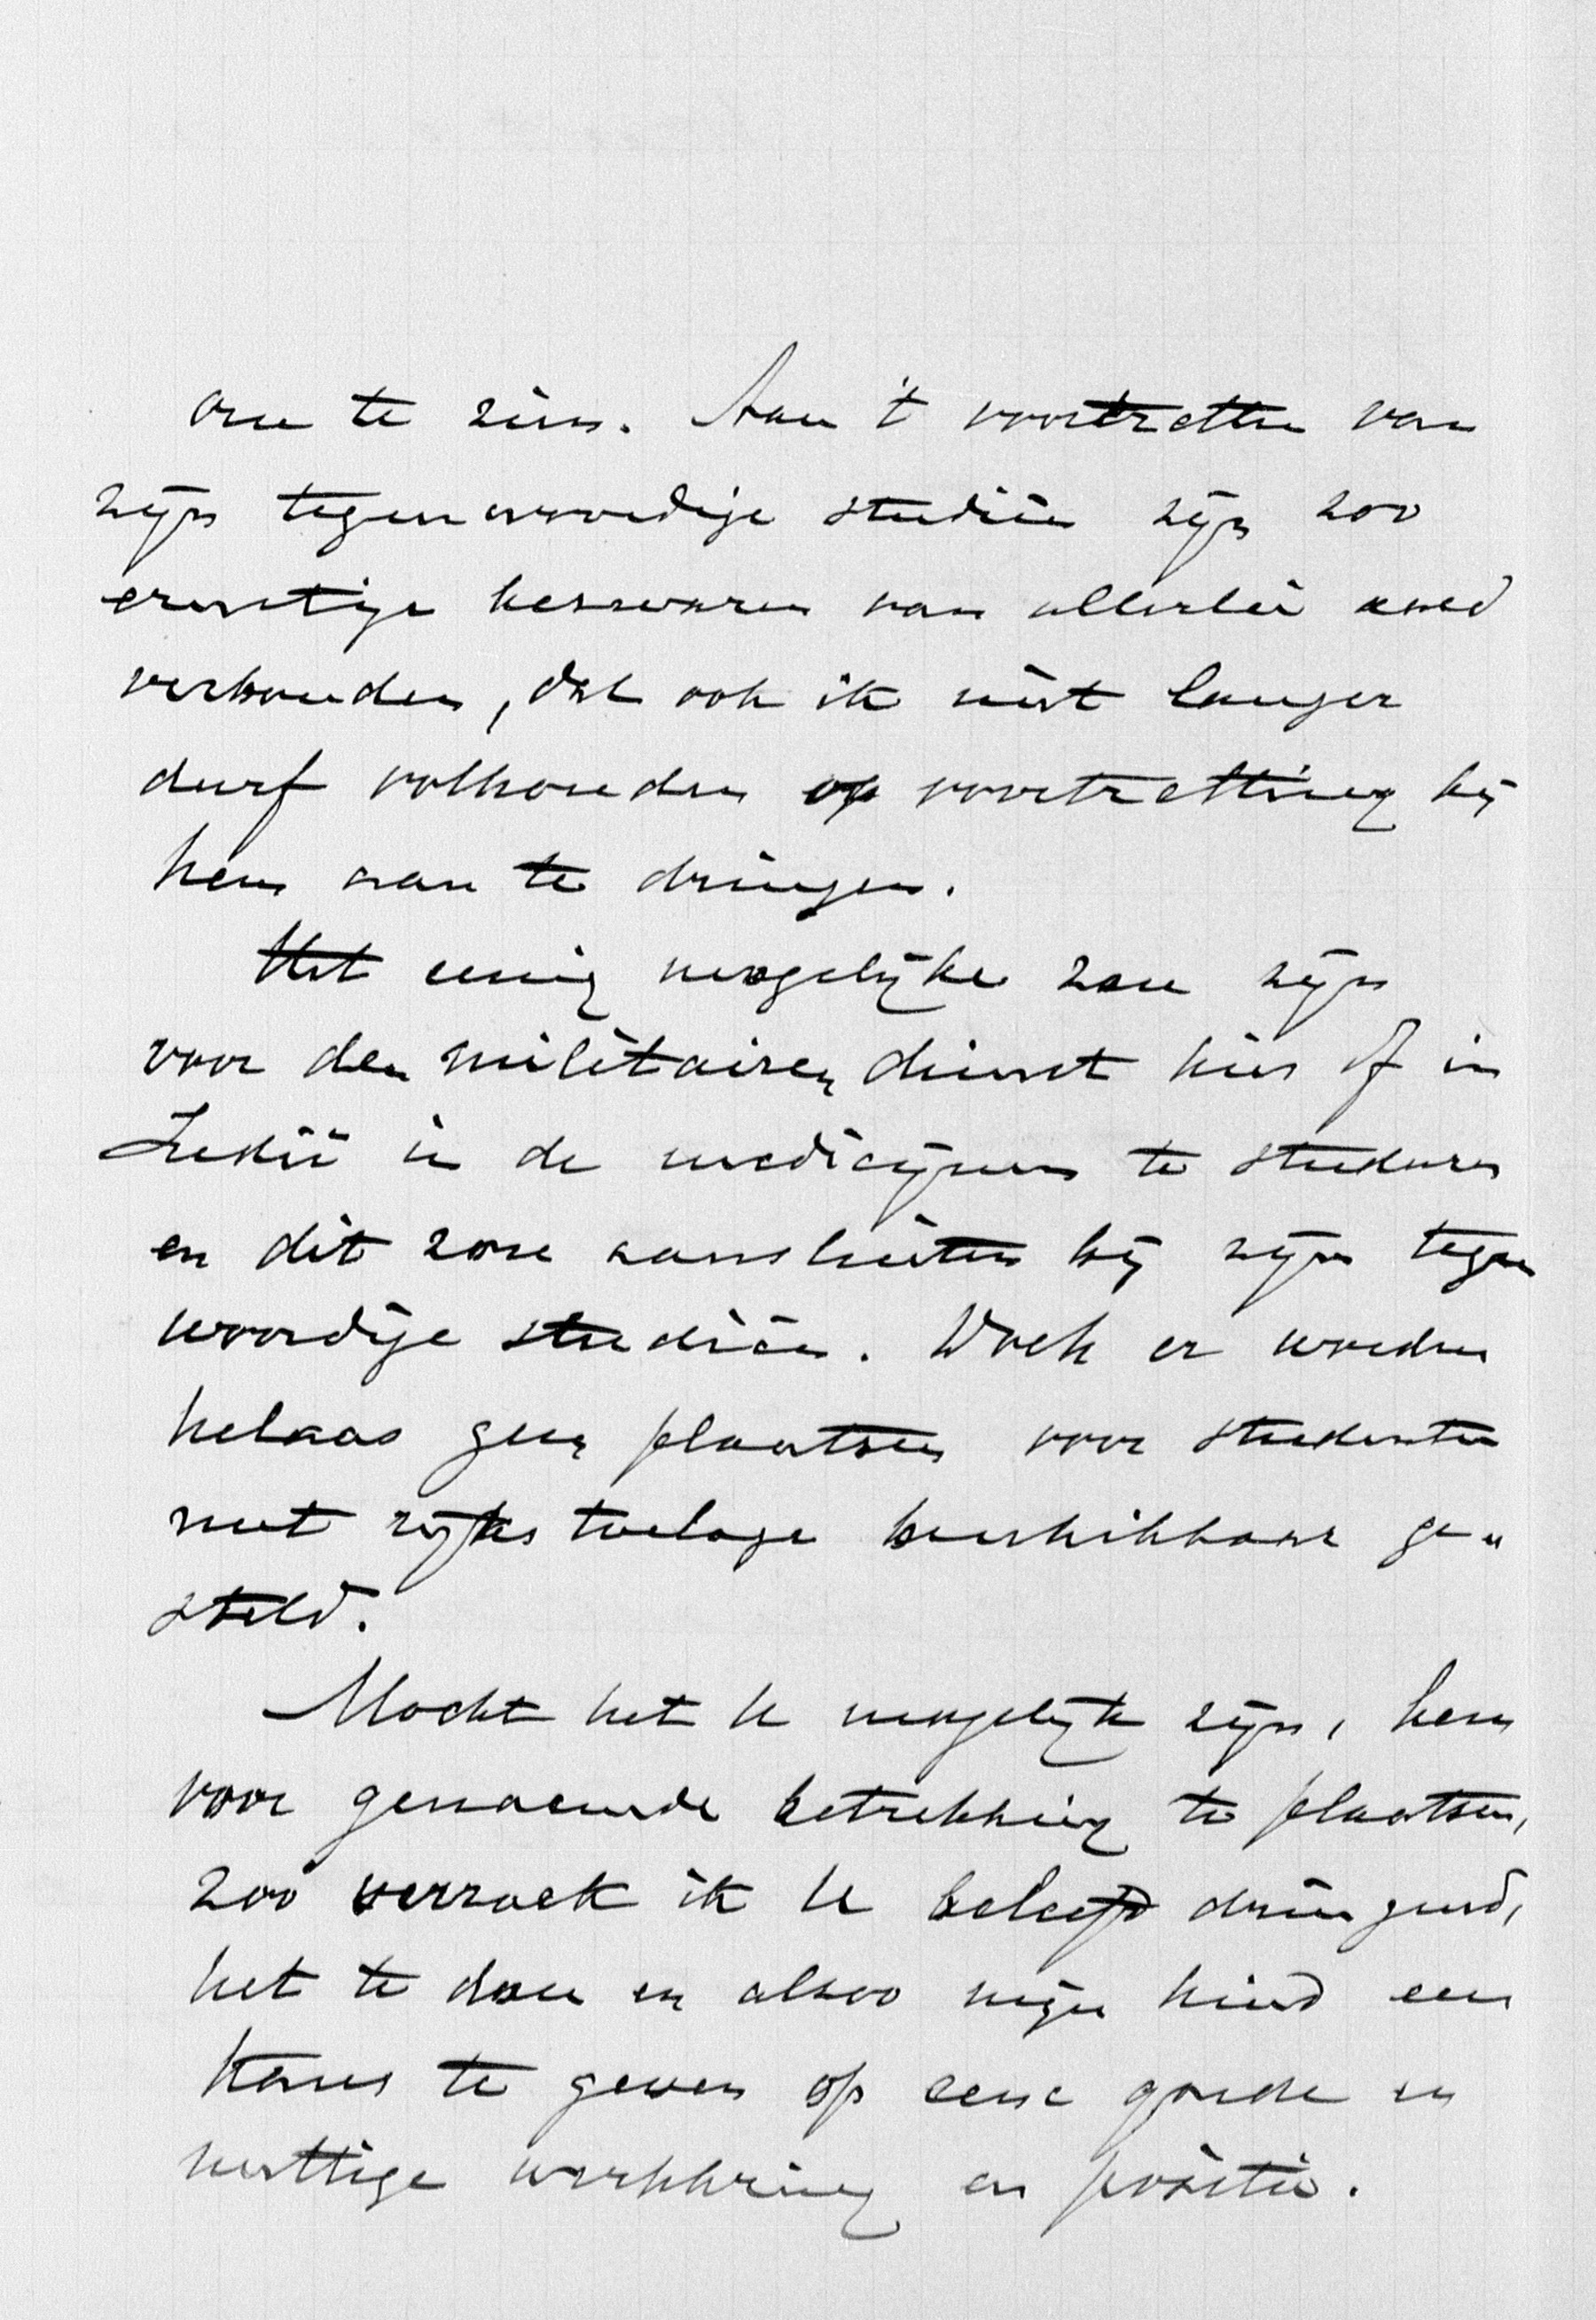 om te zien. Aan 't voortzetten van
zijn tegenwoordige studiën zijn zoo
ernstige bezwaren van allerlei aard
verbonden, dat ook ik niet langer
durf volhouden op voortzetting bij
hem aan te dringen.
Het eenig mogelijke zou zijn
voor den militairen dienst hier of in
Indië in de medicijnen te studeren
en dit zou aansluiten bij zijn tegen
woordige studiën. Doch er worden
helaas geen plaatsen voor studenten
met rijkstoelage beschikbaar ge-
steld.
Mocht het U mogelijk zijn, hem
voor genoemde betrekking te plaatsen,
zoo verzoek ik U beleefd dringend,
het te doen en alzoo mijn kind een
kans te geven op eene goede en
nuttige werkkring en positie.